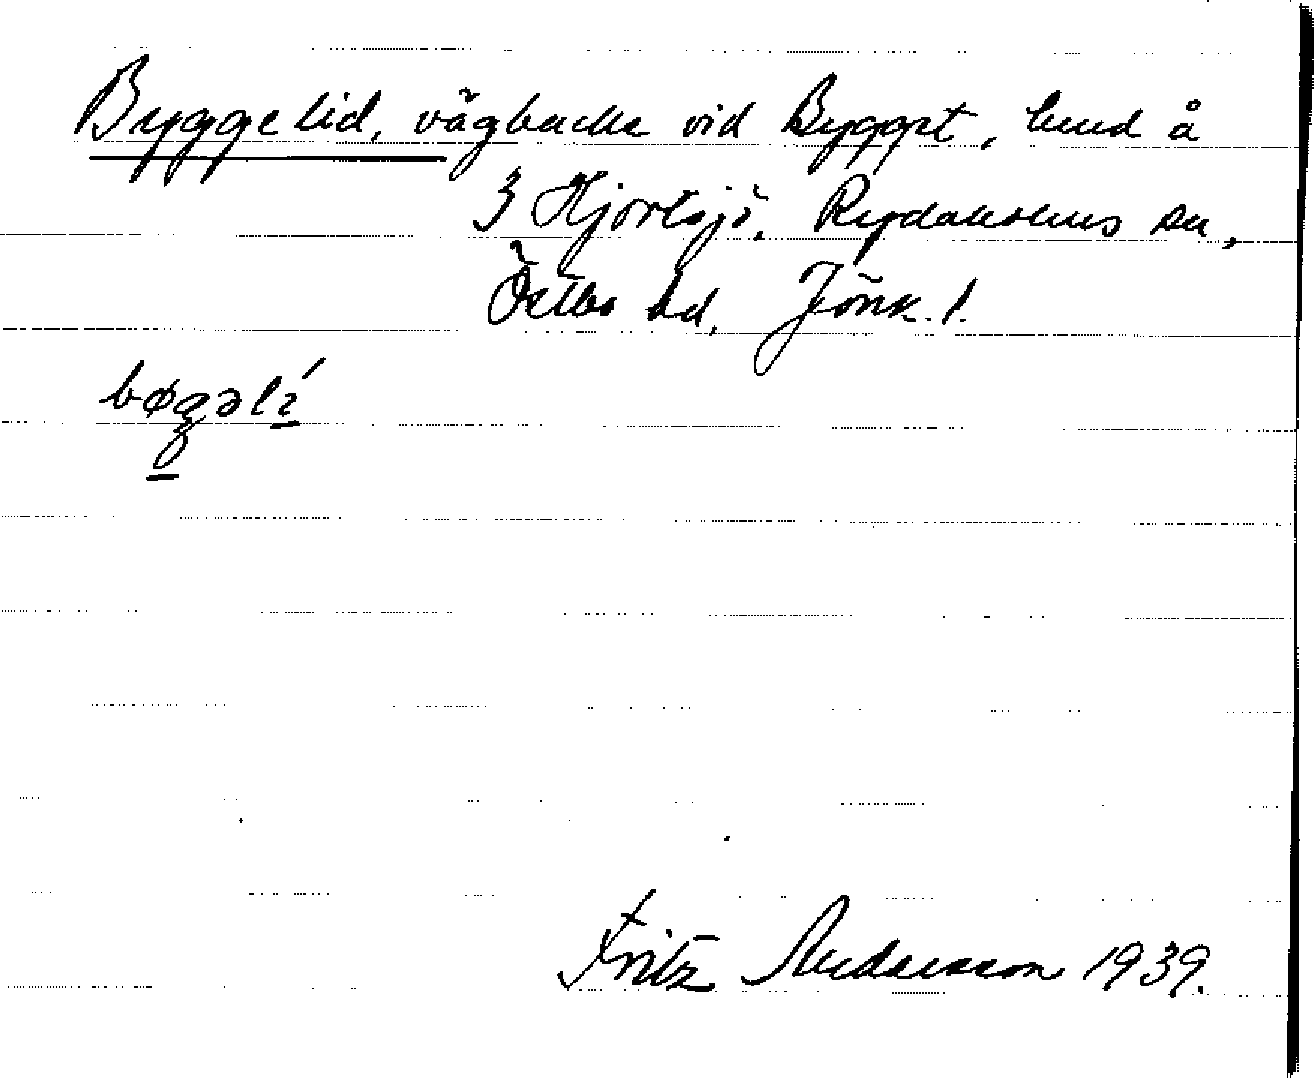 Byggelid, vägbacke vid Bygget, lund å
3 Hjortsjö, Rydaholms sn,
Östbo hd, Jönk. l.
bøgəlí
Fritz Andersson 1939.